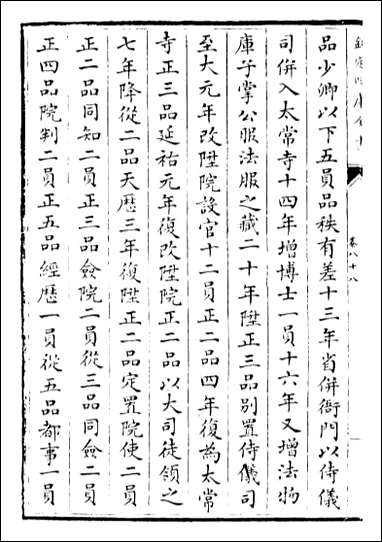 欽定四庫全書
卷八十八
品少卿以下五員品秩有差十三年省併衙門以侍儀
司併入太常寺十四年增博士一員十六年又增法物
庫子掌公服法服之藏二十年陞正三品別置侍儀司
至大元年改陞院設官十二員正二品四年復為太常
寺正三品延祐元年復改陞院正二品以大司徒領之
七年降從二品天歷三年復陞正二品定置院使二員
正二品同知二員正三品僉院二員從三品同僉二員
正四品院判二員正五品經歷一員從五品都事一員